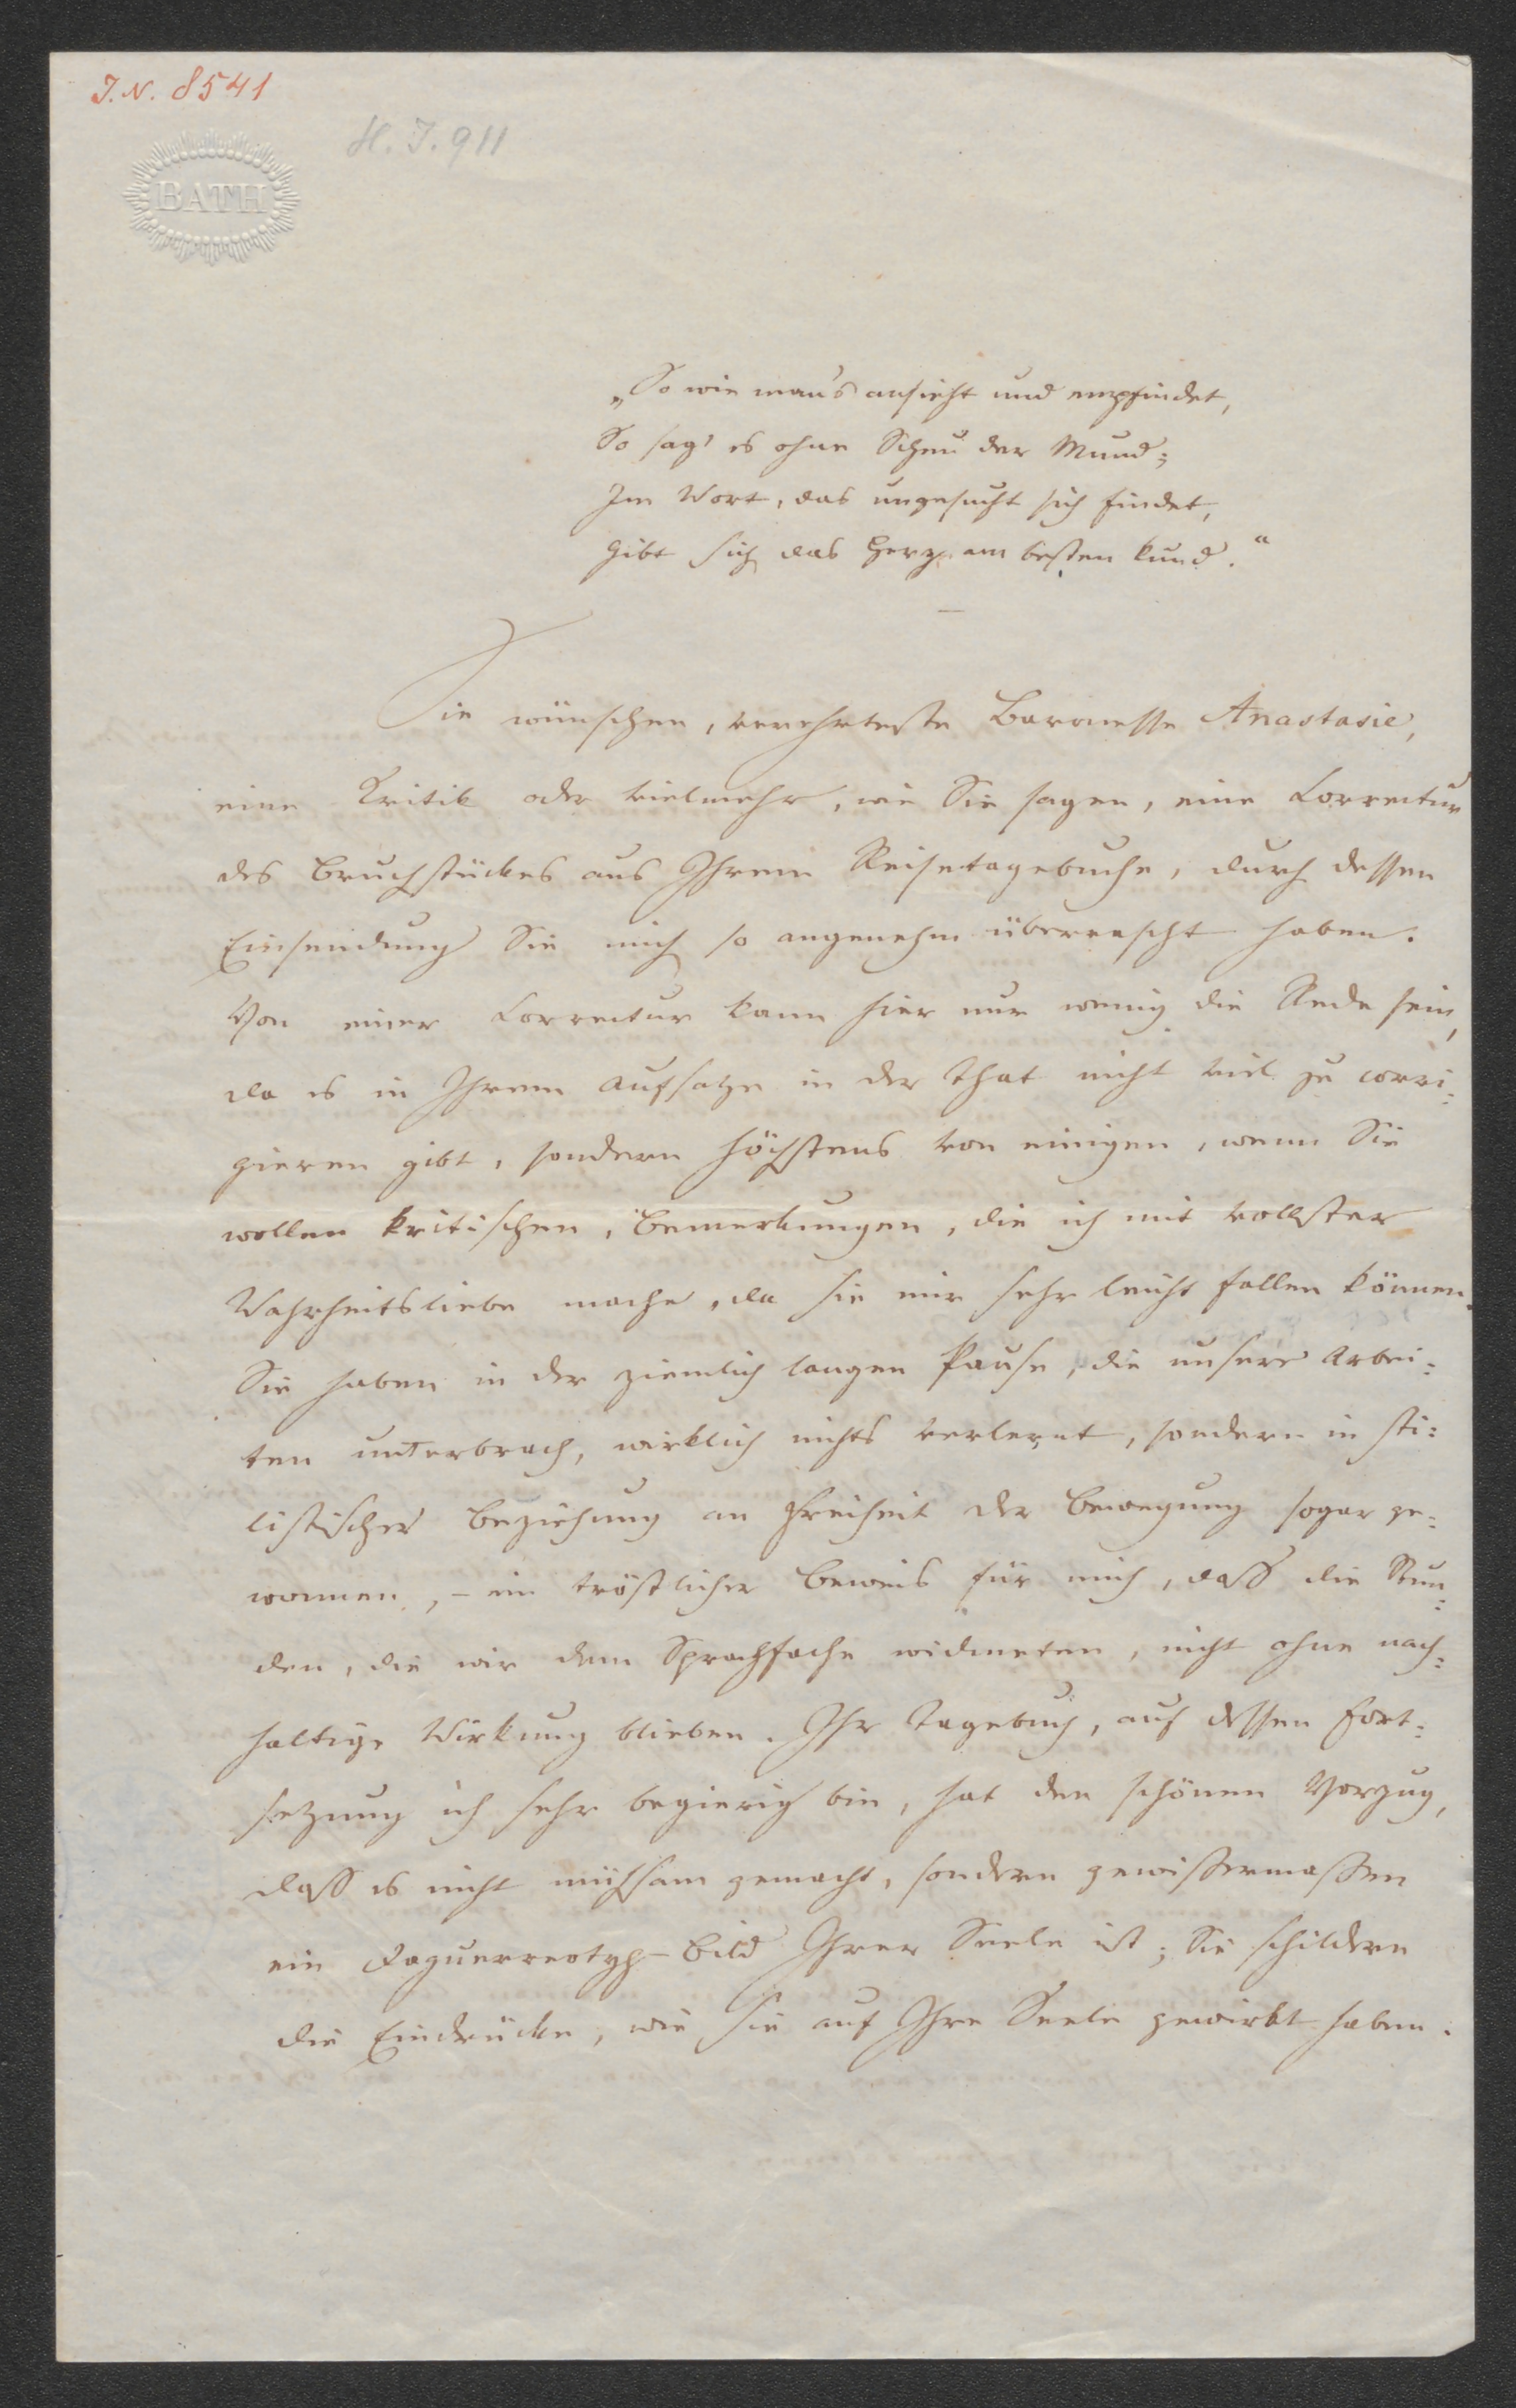 J. N. 8541
H. J. 911
BATH
„So wie man's ansieht und empfindet,
So sag' es ohne Scheu der Mund;
Im Wort, das ungesucht sich findet,
Gibt sich das Herz am besten kund."
Sie wünschen, verehrteste Baronesse Anastasie,
eine Kritik oder vielmehr, wie Sie sagen, eine Correctur
des Bruchstückes aus Ihrem Reisetagebuche, durch dessen
Einsendung Sie mich so angenehm überrascht haben.
Von einer Correctur kann hier nur wenig die Rede sein,
da es in Ihrem Aufsatze in der That nicht viel zu corri:
gieren gibt, sondern höchstens von einigen, wenn Sie
wollen kritischen, Bemerkungen, die ich mit vollster
Wahrheitsliebe mache, da sie mir sehr leicht fallen können.
Sie haben in der ziemlich langen Pause, die unsere Arbei:
ten unterbrach, wirklich nichts verlernt, sondern in sti:
listischer Beziehung an Freiheit der Bewegung sogar ge:
wonnen, – ein tröstlicher Beweis für mich, daß die Stun:
den, die wir dem Sprachfache widmeten, nicht ohne nach:
haltige Wirkung blieben. Ihr Tagebuch, auf dessen Fort:
setzung ich sehr begierig bin, hat den schönen Vorzug,
daß es nicht mühsam gemacht, sondern gewissermassen
ein Daguerreotyp-Bild Ihrer Seele ist; Sie schildern
die Eindrücke, wie sie auf Ihre Seele gewirkt haben.